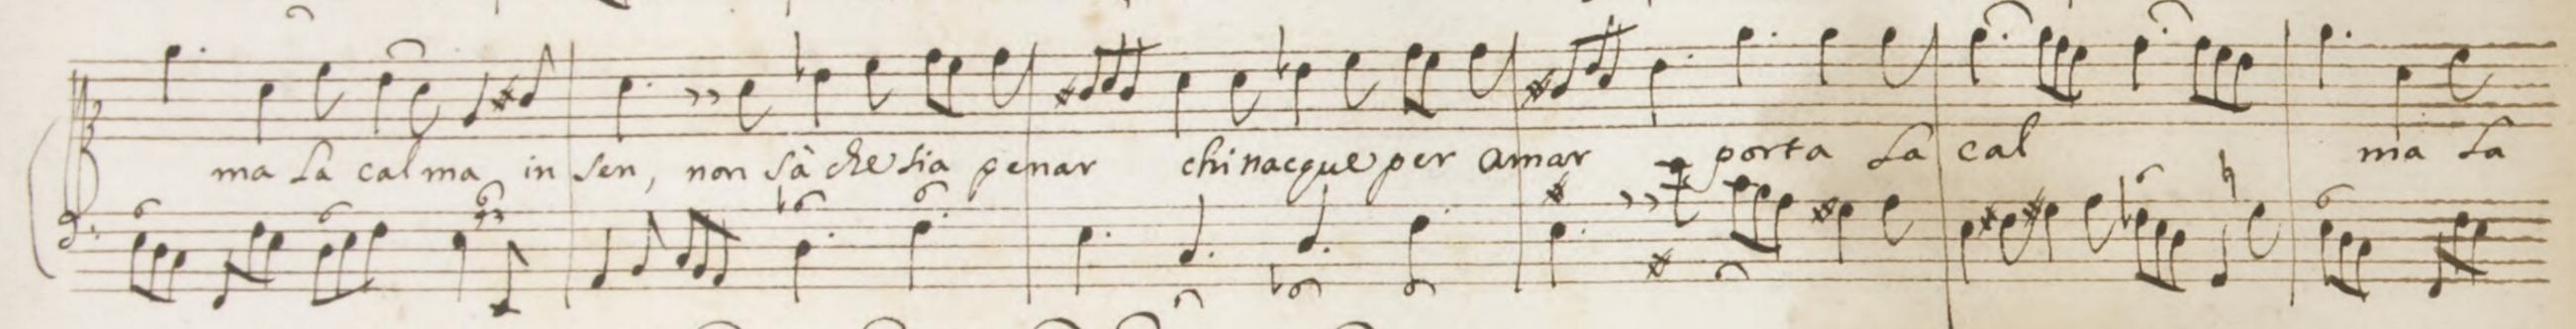 ma La calma in sen, non sà che sia penar chi nacque per amar porta La cal ma La